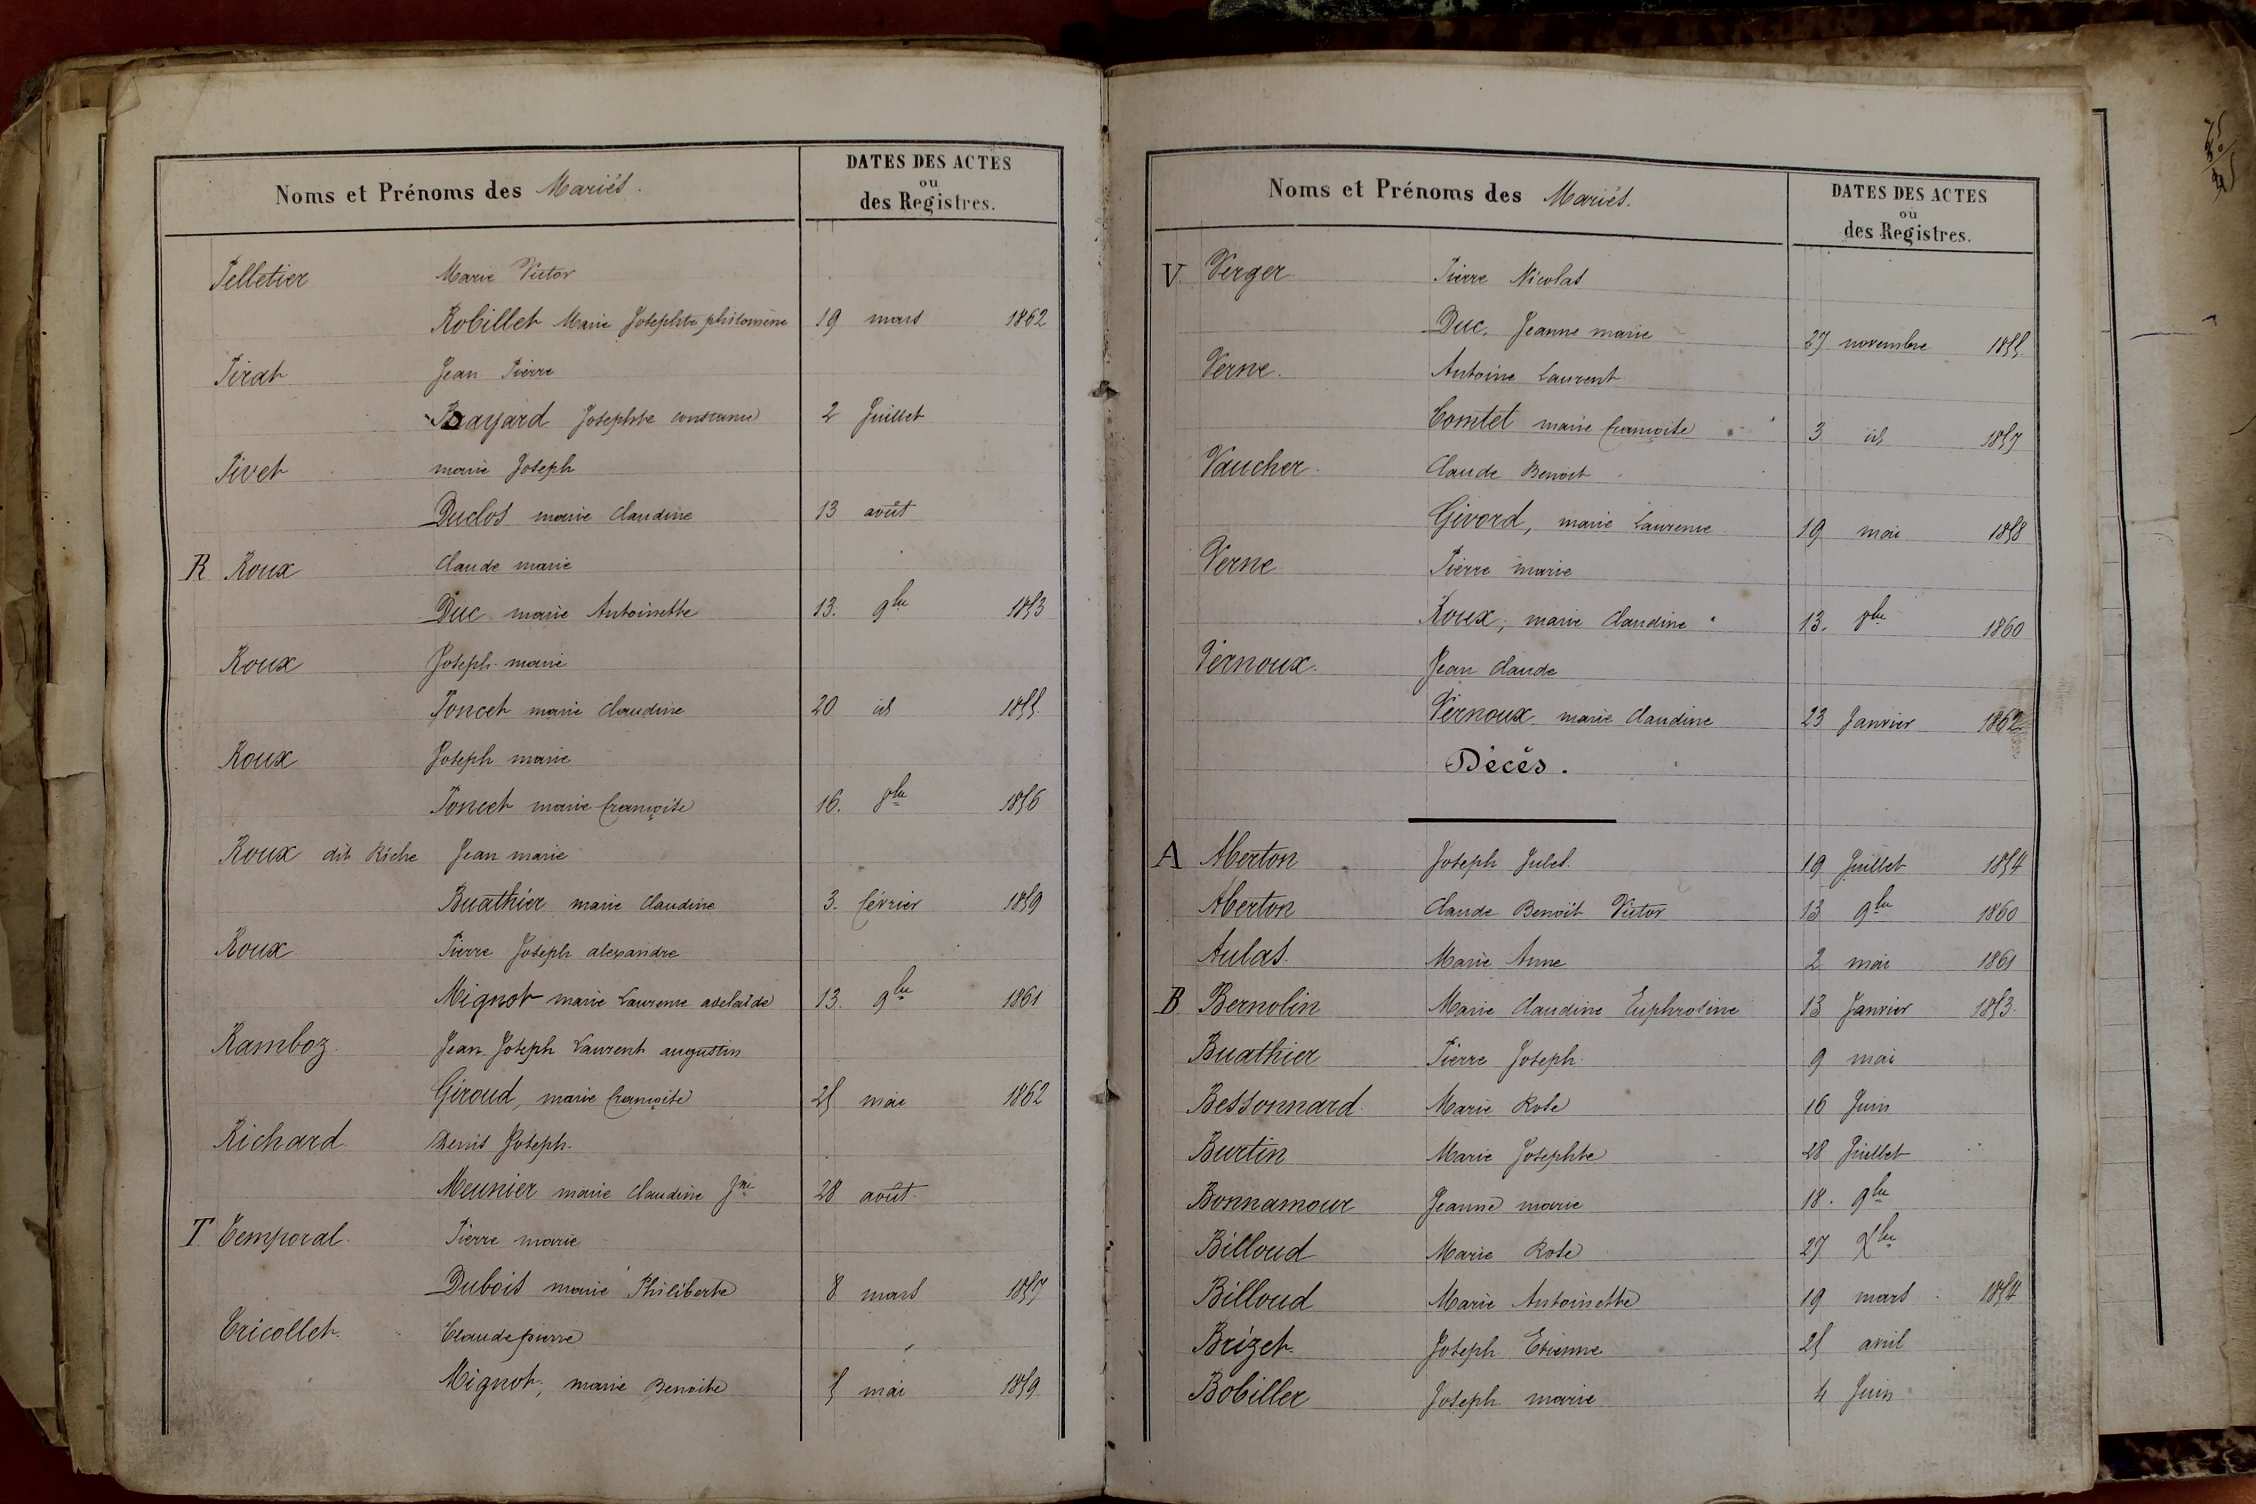 Noms et Prénoms des Mariés.
DATES DES ACTES
ou
des Registres.
Pelletier Marie Victor
Robillet Marie Josephte philomène 19 mars 1862
Pirat Jean Pierre
Bayard Josephte constance 2 Juillet
Pivet marie Joseph
Duclos marie Claudine 13 août
R Roux Claude marie
Duc marie Antoinette 13. 9bre 1853
Roux Joseph marie
Poncet marie Claudine 20 id 1855
Roux Joseph marie
Poncet marie françoise 16. 8bre 1856
Roux dit Riche Jean marie
Buathier marie Claudine 3. février 1859
Roux Pierre Joseph alexandre
Mignot marie Laurence adelaïde 13. 9bre 1861
Ramboz Jean Joseph Laurent augustin
Giroud, marie françoise 25 mai 1862
Richard Denis Joseph.
Meunier marie Claudine Jne 28 août.
T Temporal. Pierre marie
Dubois marie Philiberte 8 mars 1857
Tricollet. Claude pierre
Mignot, marie Benoite 5 mai 1859
Noms et Prénoms des Mariés.
DATES DES ACTES
ou
des Registres.
V. Verger Pierre Nicolas
Duc, Jeanne marie 27 novembre 1855
Verne. Antoine Laurent
Comtet marie françoise 3 id 1857
Vaucher. Claude Benoit
Givord, marie Laurence 19 mai 1858
Verne Pierre marie
Roux, marie Claudine 13. 8bre 1860
Vernoux. Jean Claude
Vernoux marie Claudine 23 Janvier 1862
Décès.
A Alberton Joseph Jules. 19 Juillet 1854
Alberton Claude Benoit Victor 13 9bre 1860
Aulas. Marie Anne 2 mai 1861
B. Bernolin Marie Claudine Euphrosine 13 Janvier 1853.
Buathier Pierre Joseph. 9 mai
Bessonnard. Marie Rose 16 Juin
Burtin Marie Josephte 28 Juillet
Bonnamour Jeanne marie 18. 9bre
Billoud Marie Rose 27 Xbre
Billoud Marie Antoinette 19 mars 1854
Brizet. Joseph Etienne 25 avril
Bobiller Joseph marie 4 Juin